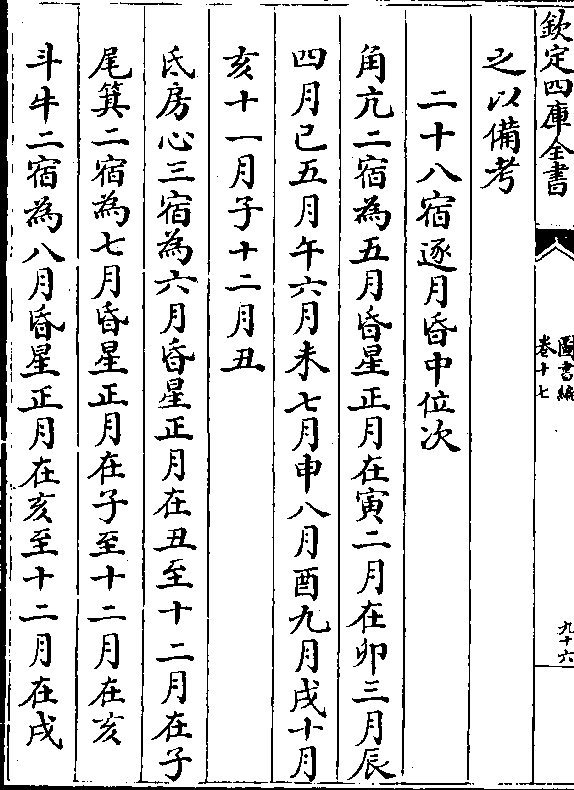 欽定四庫全書
圖書編
卷十七
九十六
之以備考
二十八宿逐月昏中位次
角亢二宿為五月昏星正月在寅二月在卯三月辰
四月巳五月午六月未七月申八月酉九月戌十月
亥十一月子十二月丑
氐房心三宿為六月昏星正月在丑至十二月在子
尾箕二宿為七月昏星正月在子至十二月在亥
斗牛二宿為八月昏星正月在亥至十二月在戌